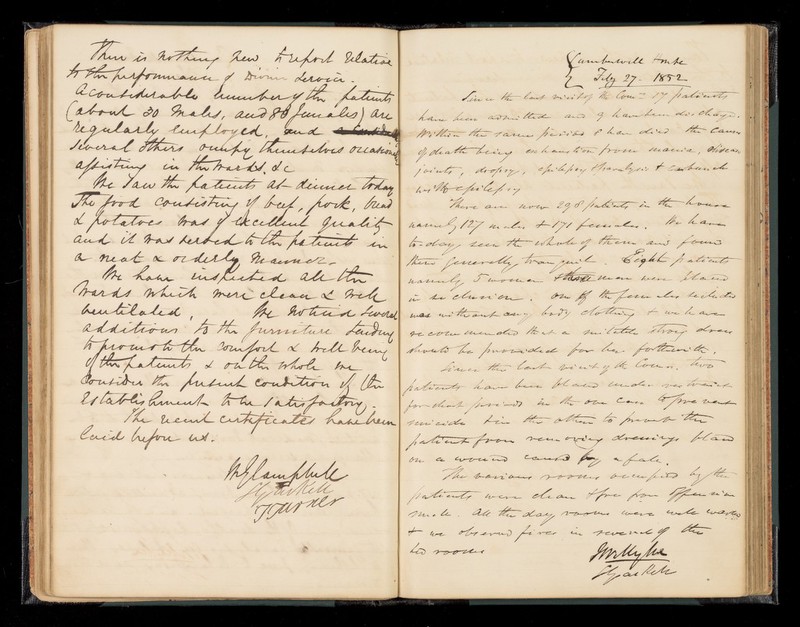 There is nothing new to report relative
to the performance of Divine Service.
A considerable number of the patients
(about 30 Males, and 80 females) are
regularly employed, and
several others occupy themselves occasionally
assisting in the wards, &c
We saw the patients at dinner today
The food consisting of beef, pork, bread
& potatoes was of excellent quality
and it was served to the patients in
a neat & orderly manner.
We have inspected all the
wards which were clean & well
ventilated, We noticed several
additions to the furniture tending
to promote the comfort & well being
of the patients & on the whole we
consider the present condition of the
Establishment to be satisfactory.
The recent certificates have been
laid before us.
W G Campbell
S Gaskell
T Turner
Camberwell House
Feby 27 - 1852
Since the last visit of the Comrs 17 patients
have been admitted and 9 have been discharged.
Within the same period 8 have died the causes
of death being exhaustion from mania, disease
joints, dropsy, epilepsy & paralysis & carbuncle
with epilepsy
There are now 298 patients in the house
namely 127 males & 171 females. We have
to-day seen the whole of them and found
them generally tranquil. Eight patients
namely 5 women & three men were placed
in seclusion. One of the females secluded
was without any body clothing & we have
recommended that a suitable strong dress
should be provided for her forthwith.
Since the last visit of the Comrs. two
patients have been placed under restraint
for short periods in the one case to prevent
suicide & in the other to prevent the
patient from removing dressings placed
on a wound caused by a fall.
The various rooms occupied by the
patients were clean & free from offensive
smell. All the day rooms were well warmed
& we observed fires in several of the
bed rooms
J W Mylne
S Gaskell